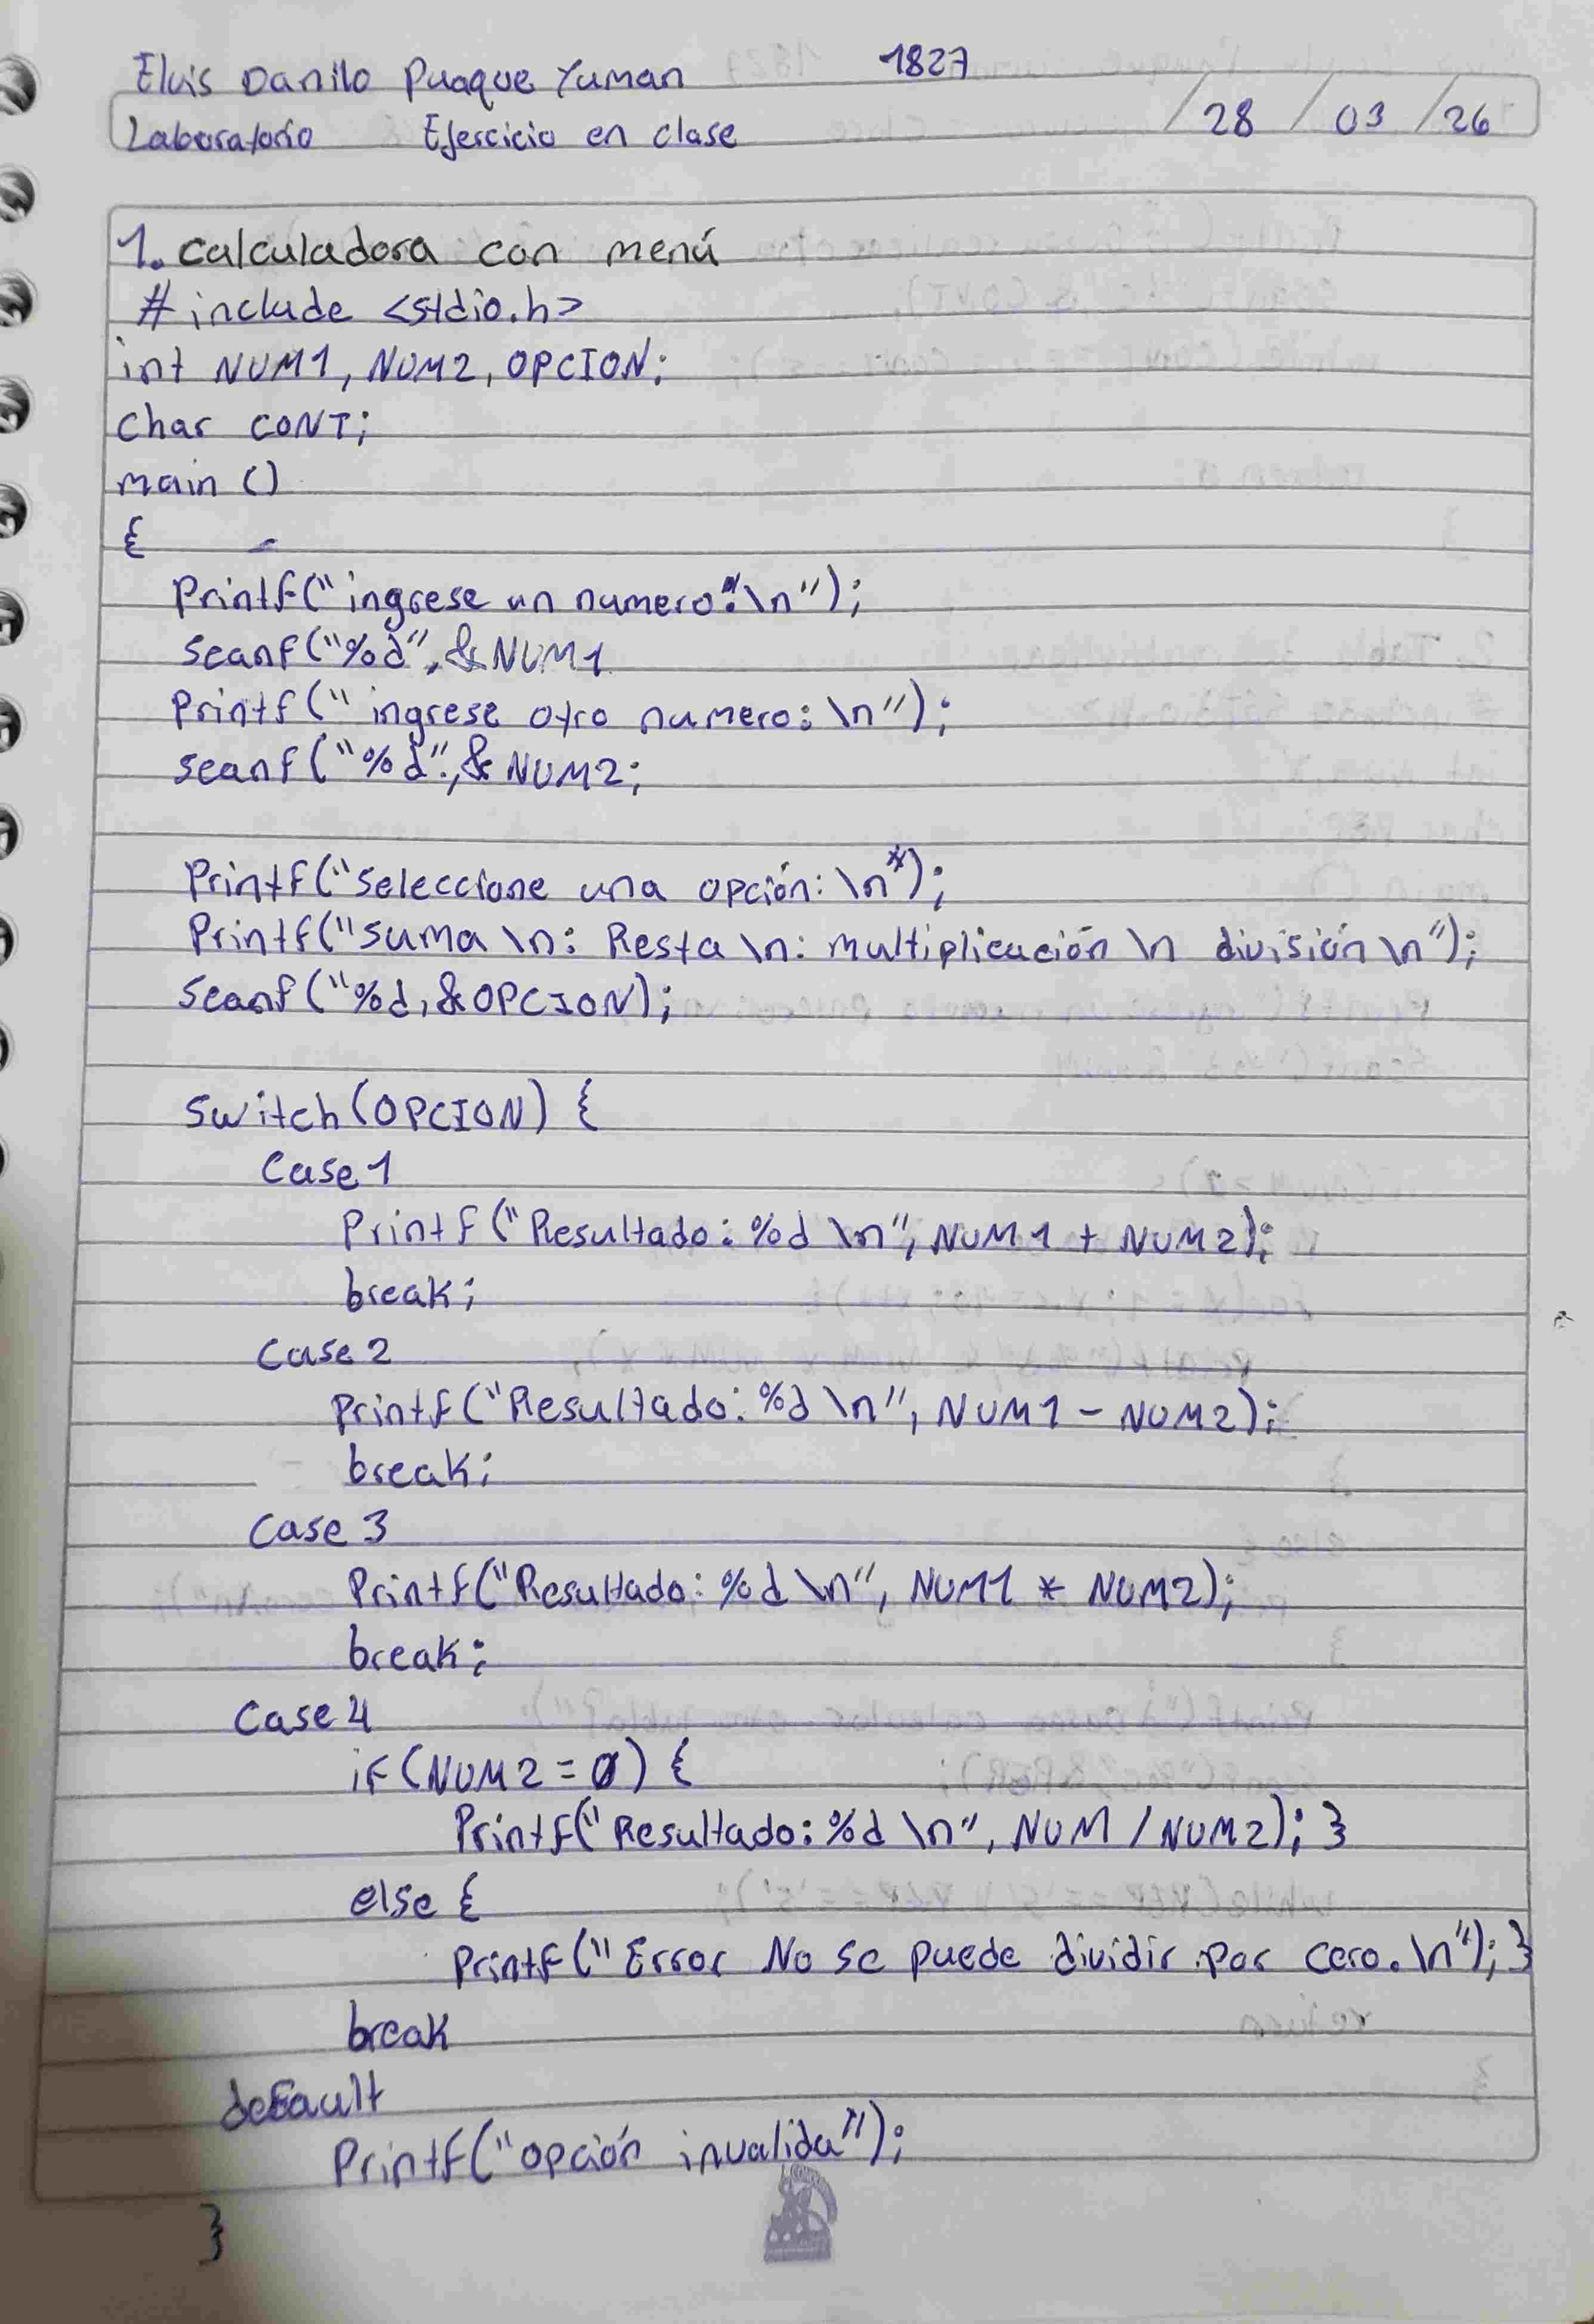 Elvis Danilo Puaque Yuman 1827
Laboratorio Ejercicio en clase /28 / 03 /26
1. Calculadora con menú
# include <stdio.h>
int NUM1, NUM2, OPCION;
Char CONT;
main ()
{
Printf("ingrese un numero:\n");
Scanf("%d", &NUM1
Printf(" ingrese otro numero: \n");
scanf("%d", & NUM2;
Printf("Seleccione una opción: \n");
Printf("suma \n: Resta \n: multiplicación \n división \n");
Scanf("%d, &OPCION);
Switch(OPCION) {
Case 1
Printf("Resultado: %d \n", NUM1 + NUM2);
break;
Case 2
Printf("Resultado: %d \n", NUM1 - NUM2);
break;
Case 3
Printf("Resultado: %d \n", NUM1 * NUM2);
break;
Case 4
if(NUM2 = 0) {
Printf("Resultado: %d \n", NUM / NUM2); }
else {
Printf(" Error No se puede dividir por cero. \n"); }
break
default
Printf("opción invalida");
}